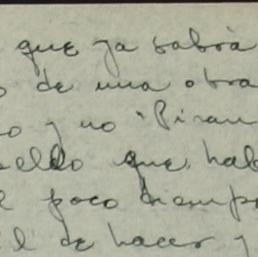 que ya sabrà
o de una obra
o y no "Piran
sello que hab
l poco tiempo
il de hacer y